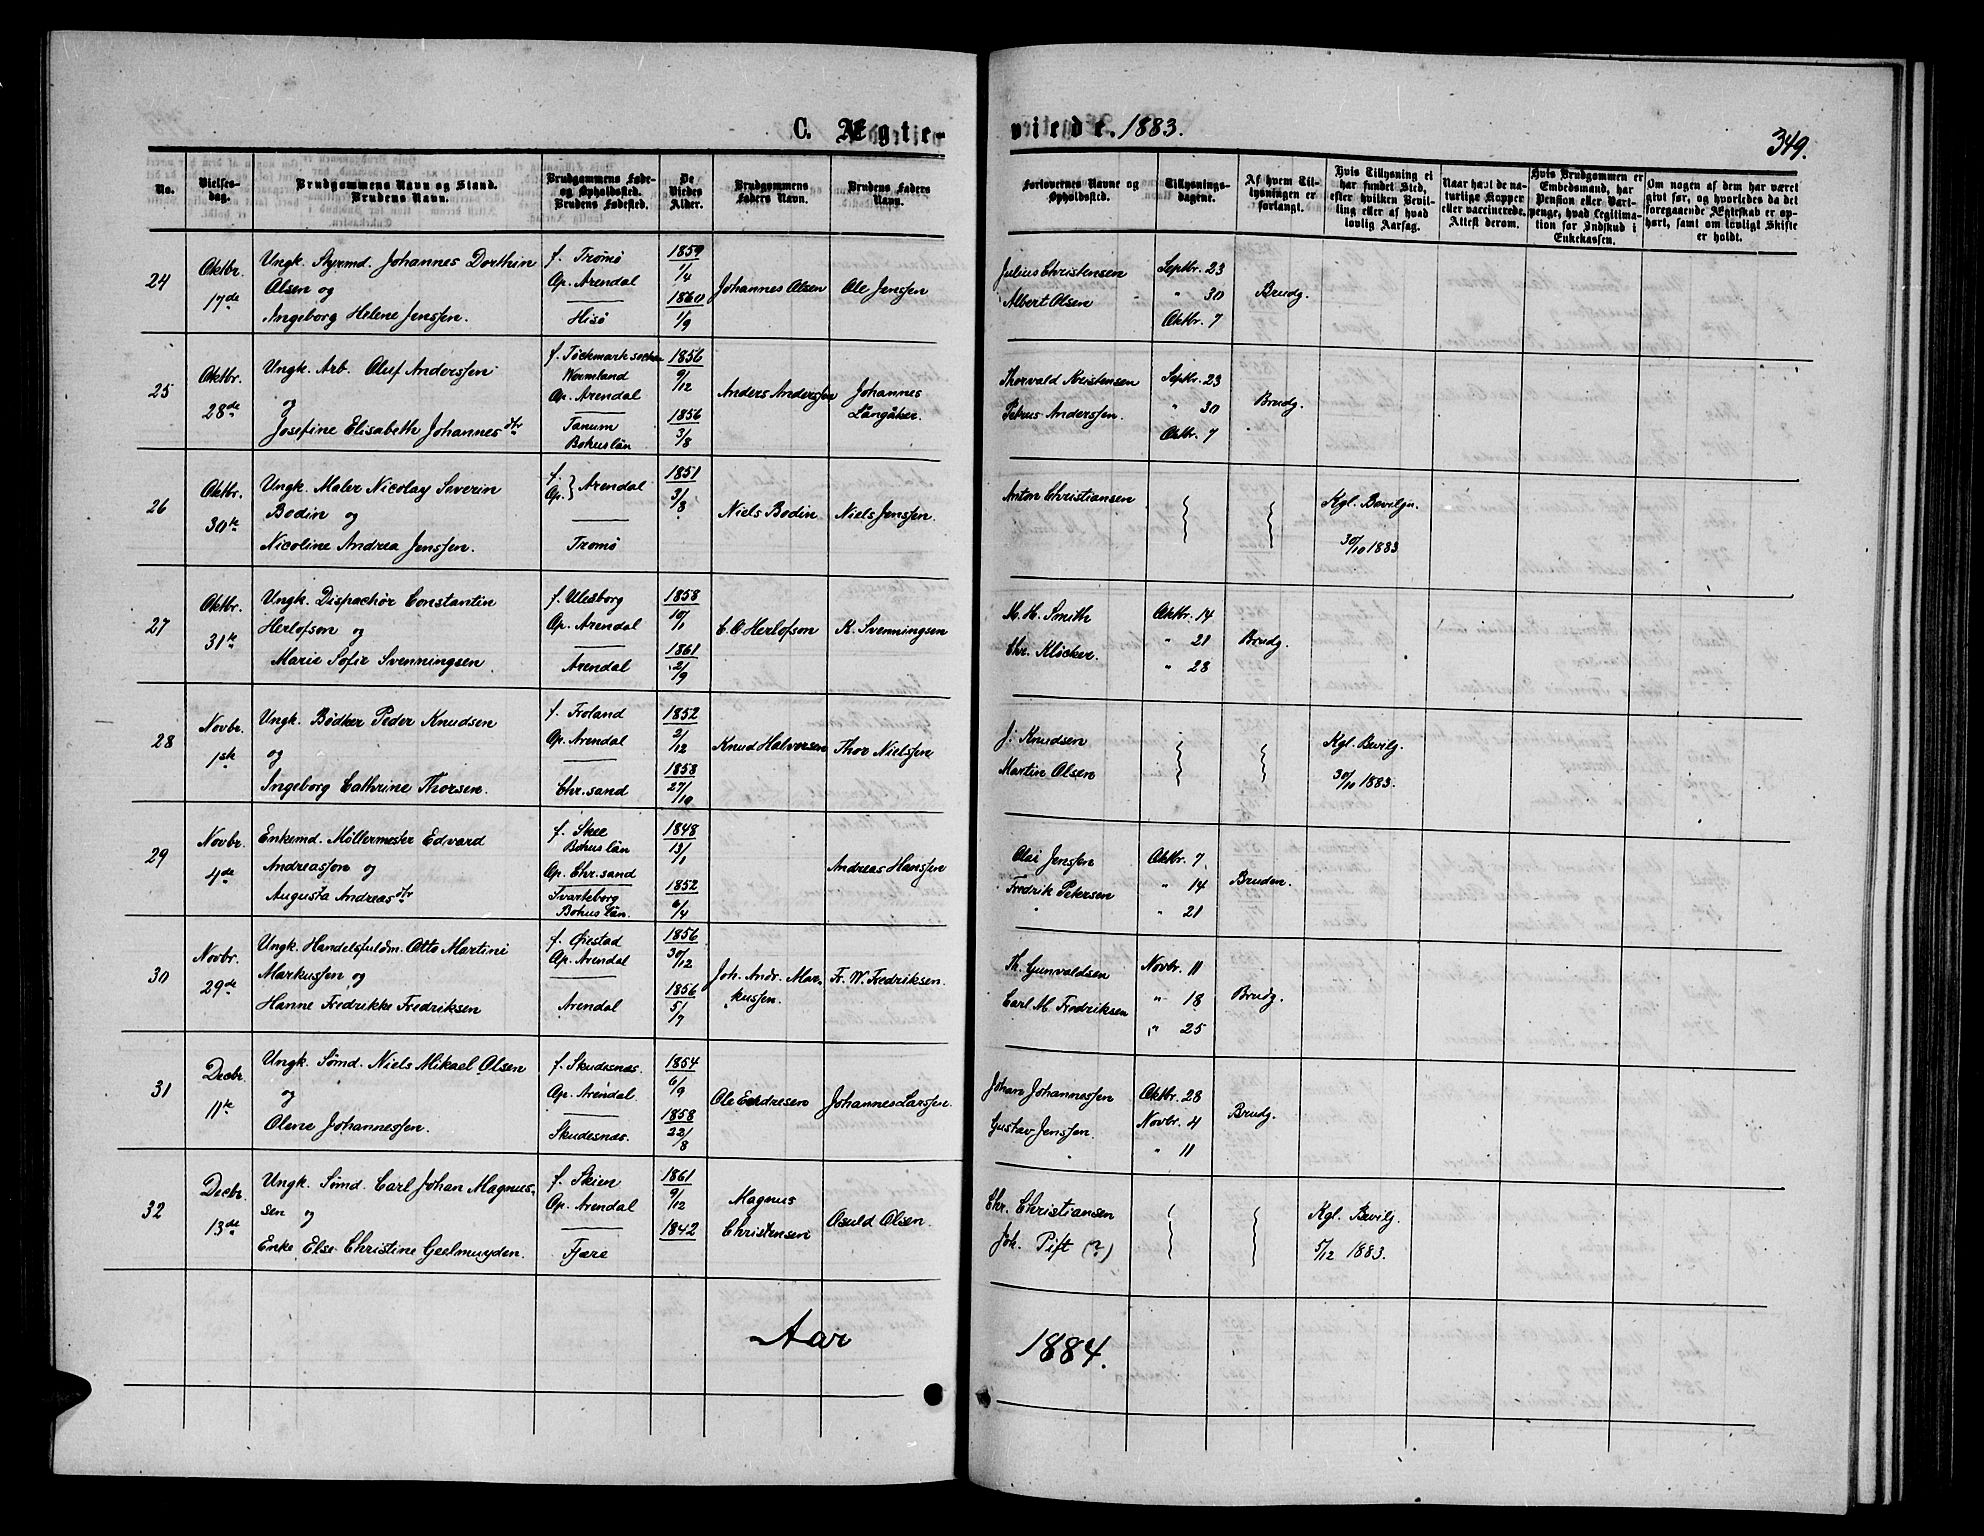 C. Ægte-
viede. 1883.
349.
No.
Vielses-
dag.
Brudgommens Navn og Stand.
Brudens Navn.
Brudgommens Føde-
og Opholdssted.
Brudens Fødested.
De
Viedes
Alder.
Brudgommens
Faders Navn.
Brudens Faders
Navn.
Forlovernes Navne og
Opholdssted.
Tillysnings-
dagene.
Af hvem Til-
lysningen er
forlangt.
Hvis Tillysning ei
har fundet Sted,
efter hvilken Bevil-
ling eller af hvad
lovlig Aarsag.
Naar havt de na-
turlige Kopper
eller vaccinerede.
Attest derom.
Hvis Brudgommen er
Embedsmand, har
Pension eller Vart-
penge, hvad Legitima-
tion for Indskud i
Enkekassen.
Om nogen af dem har været
givt før, og hvorledes da det
foregaaende Ægteskab er op-
hørt, samt om lovligt Skifte
er holdt.
24
Oktbr.
17de
Ungk. Styrmd. Johannes Dorthin
Olsen og
Ingeborg Helene Jenssen.
f. Tromø
Op. Arendal
Hisø
1859
1/4
1860
1/9
Johannes Olsen
Ole Jenssen
Julius Christensen
Albert Olsen
Septbr. 23
" 30
Oktbr. 7
Brudg.
25
Oktbr.
28de
Ungk. Arb. Oluf Anderssen
og
Josefine Elisabeth Johannesdtr
f. Töckmark socken
Wermland
Op. Arendal
Tanum
Bohuslän
1856
9/12
1856
3/8
Anders Anderssen
Johannes
Langåker.
Thorvald Kristensen
Petrus Anderssen.
Septbr. 23
" 30
Oktbr. 7
Brudg.
26
Oktbr.
30te
Ungk. Maler Nicolay Severin
Bodin og
Nicoline Andrea Jenssen.
f.
Op. } Arendal
Tromø
1851
3/8
Niels Bodin
Niels Jenssen.
Anton Christiansen
Kgl. Bevilgn.
30/10 1883
27
Oktbr.
31te
Ungk. Dispachör Constantin
Herlofson og
Marie Sofie Svenningsen.
f. Uleborg
Op. Arendal
Arendal
1858
10/1
1861
2/9
C. O Herlofson
K. Svenningsen
M. H. Smith
Chr. Klöcker.
Oktbr. 14
" 21
" 28
Brudg.
28
Novbr.
1ste
Ungk. Bödker Peder Knudsen
og
Ingeborg Cathrine Thorsen.
f. Froland
Op. Arendal
Chr.sand
1852
2/12
1858
27/10
Knud Halvorsen
Thor Nielssen
J. Knudsen
Martin Olsen
Kgl. Bevilg.
30/10 1883.
29
Novbr.
4de
Enkemd. Møllermester Edvard
Andreassen og
Augusta Andreasdtr
f. Skee
Bohuslän
Op. Chr.sand
Svarteborg
Bohuslän.
1848
13/1
1852
6/4
Andreas Hanssen
Olai Jenssen
Fredrik Petersen
Oktbr. 7
" 14
" 21
Bruden.
30
Novbr.
29de
Ungk. Handelsfuldm. Otto Martini
Markussen og
Hanne Fredrikke Fredriksen
f. Øiestad
Op. Arendal
Arendal
1856
30/12
1856
5/7
Joh. Andr. Mar-
kussen.
Fr. W. Fredriksen.
Th. Gunvaldsen
Carl M. Fredriksen
Novbr. 11
" 18
" 25
Brudg.
31
Decbr.
11te
Ungk. Sømd. Niels Mikael Olsen
og
Olene Johannessen.
f. Skudesnæs.
Op. Arendal.
Skudesnæs.
1854
6/9
1858
22/8
Ole Endresen
Johannes Larssen.
Johan Johannessen
Gustav Jenssen.
Oktbr. 28
Novbr. 4
" 11
Brudg.
32
Decbr.
13de
Ungk. Sømd. Carl Johan Magnus-
sen og
Enke Else Christine Geelmuyden.
f. Skien
Op. Arendal
Fjære
1861
9/12
1842
Magnus
Christensen
Osuld Olsen.
Chr. Christiansen
Joh. Pift (?)
Kgl. Bevilg.
5/12 1883.
Aar
1884.